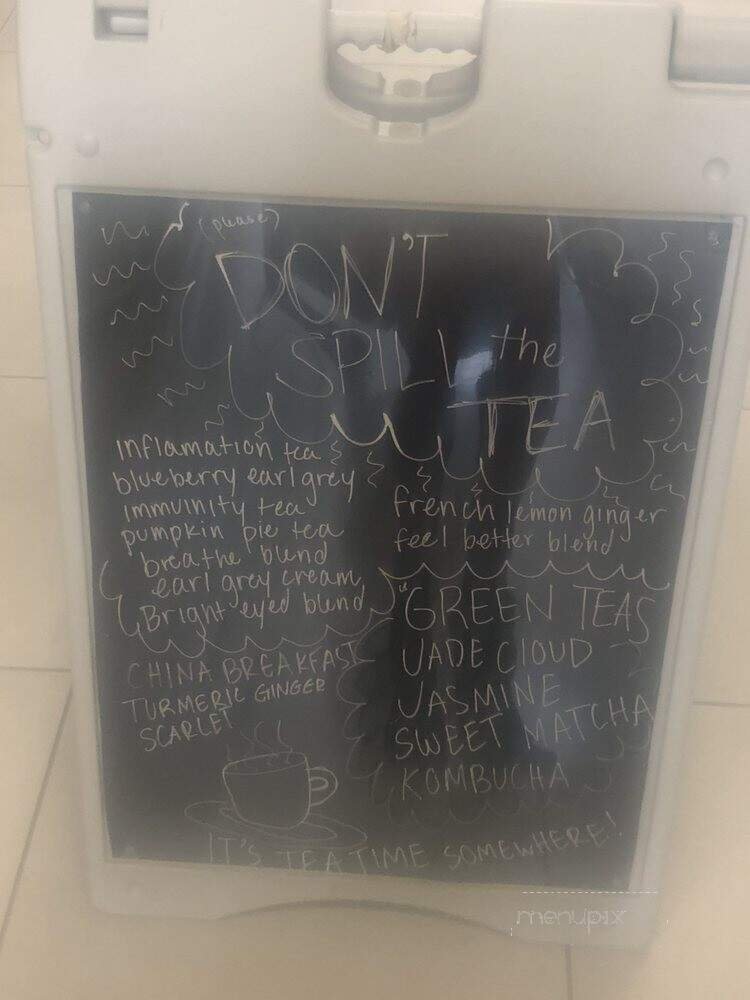 (please)
DON'T
SPILL the
TEA
Inflamation tea
blueberry earl grey
immuinity tea
pumpkin pie tea
breathe blend
earl grey cream
Bright eyed blend
CHINA BREAKFAST
TURMERIC GINGER
SCARLET
french lemon ginger
feel better blend
GREEN TEAS
JADE CLOUD
JASMINE
SWEET MATCHA
KOMBUCHA
IT'S TEA TIME SOMEWHERE!
menupix